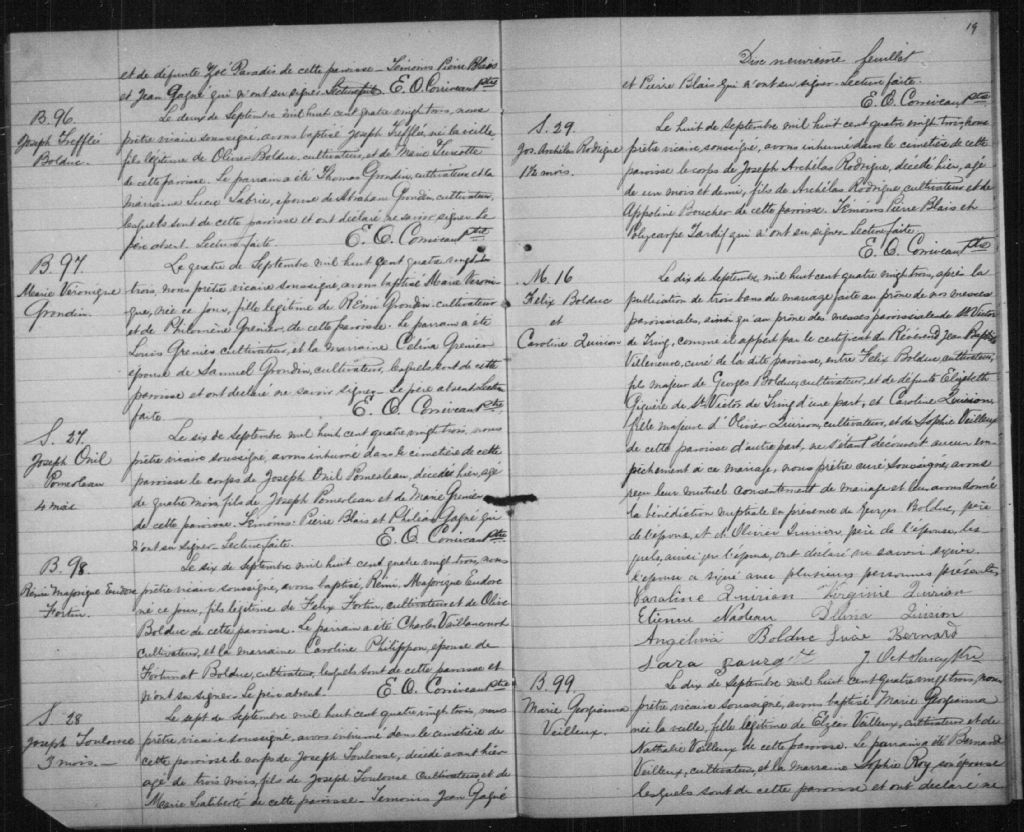 et de défunte Zoé Paradis de cette paroisse - Témoins Pierre Blais
et Jean Gagné qui n'ont su signer Lecture faite E. O. Corriveau Ptre
B. 96.
Joseph Trefflé
Bolduc.
Le deux de Septembre mil huit cent quatre vingt trois, nous
prêtre vicaire soussigné, avons baptisé Joseph Trefflé, né la veille
fils légitime de Olivier Bolduc, cultivateur, et de Marie Turcotte
de cette paroisse. Le parrain a été Thomas Grondin, cultivateur et la
marraine Lucie Labrie, épouse de Abraham Grondin, cultivateur,
lesquels sont de cette paroisse et ont déclaré ne savoir signer Le
père absent. Lecture faite. E. O. Corriveau Ptre
B. 97.
Marie Véronique
Grondin.
Le quatre de Septembre mil huit cent quatre vingt
trois, nous prêtre vicaire soussigné, avons baptisé Marie Véroni-
que, née ce jour, fille légitime de Rémi Grondin cultivateur
et de Philomène Grenier, de cette paroisse. Le parrain a été
Louis Grenier cultivateur, et la marraine Célina Grenier
épouse de Samuel Grondin, cultivateur, lesquels sont de cette
paroisse et ont déclaré ne savoir signer - Le père absent Lecture
faite. E. O. Corriveau Ptre
S. 27.
Joseph Onil
Pomerleau
4 mois
Le six de Septembre mil huit cent quatre vingt trois, nous
prêtre vicaire soussigné, avons inhumé dans le cimetière de cette
paroisse le corps de Joseph Onil Pomerleau, décédé hier, agé
de quatre mois, fils de Joseph Pomerleau et de Marie Grenier
de cette paroisse. Témoins: Pierre Blais et Philéas Gagné qui
n'ont su signer - Lecture faite. E. O. Corriveau Ptre
B. 98
Rémi Majorique Eudore
Fortin.
Le six de Septembre mil huit cent quatre vingt trois, nous
prêtre vicaire soussigné, avons baptisé, Rémi Majorique Eudore
né ce jour, fils légitime de Félix Fortin, cultivateur et de Olive
Bolduc de cette paroisse. Le parrain a été Charles Vaillancourt
cultivateur, et la marraine Caroline Philippon, épouse de
Fortunat Bolduc, cultivateur, lesquels sont de cette paroisse et
n'ont su signer - Le père absent. E. O. Corriveau Ptre
S. 28
Joseph Toulouse
3 mois. -
Le sept de Septembre mil huit cent quatre vingt trois, nous
prêtre vicaire soussigné, avons inhumé dans le cimetière de
cette paroisse le corps de Joseph Toulouse, décédé avant hier
agé de trois mois, fils de Joseph Toulouse cultivateur et de
Marie Laliberté de cette paroisse - Témoins Jean Gagné
19
Dix neuvième feuillet
et Pierre Blais qui n'ont su signer - Lecture faite.
E. O. Corriveau Ptre
S. 29.
Jos. Archélas Rodrigue
1½ mois.
Le huit de Septembre mil huit cent quatre vingt trois, nous
prêtre vicaire soussigné, avons inhumé dans le cimetière de cette
paroisse le corps de Joseph Archélas Rodrigue, décédé hier, agé
de un mois et demi, fils de Archélas Rodrigue, cultivateur et de
Appoline Boucher de cette paroisse. Témoins Pierre Blais et
Polycarpe Tardif qui n'ont su signer Lecture faite.
E. O. Corriveau Ptre
M. 16
Félix Bolduc
et
Caroline Quirion
Le dix de Septembre, mil huit cent quatre vingt trois, après la
publication de trois bans de mariage faite au prône de nos messes
paroissiales, ainsi qu'au prône des messes paroissiales de St Victor
de Tring, comme il appert par le certificat du Révérend Jean Bapte
Villeneuve, curé de la dite paroisse, entre Félix Bolduc, cultivateur,
fils majeur de Georges Bolduc, cultivateur, et de défunte Elizabeth
Giguère de St. Victor de Tring d'une part, et Caroline Quirion,
fille majeure d'Olivier Quirion, cultivateur, et de Sophie Veilleux
de cette paroisse d'autre part, ne s'étant découvert aucun em-
pêchement à ce mariage, nous prêtre curé soussigné, avons
reçu leur mutuel consentement de mariage et leur avons donné
la bénédiction nuptiale en présence de Georges Bolduc, père
de l'époux, et d'Olivier Quirion, père de l'épouse, les-
quels, ainsi que l'époux, ont déclaré ne savoir signer.
L'épouse a signé avec plusieurs personnes présentes
Caroline Quirion Virginie Quirion
Etienne Nadeau Délina Quirion
Angelina Bolduc Bernard
Sara
B. 99
Marie Georgianna
Veilleux.
Le dix de Septembre mil huit cent quatre vingt trois, nous
prêtre vicaire soussigné, avons baptisé Marie Georgianna
née la veille, fille légitime de Elzéar Veilleux, cultivateur et de
Nathalie Veilleux de cette paroisse. Le parrain a été Bernard
Veilleux, cultivateur, et la marraine Sophie Roy, son épouse
lesquels sont de cette paroisse et ont déclaré ne